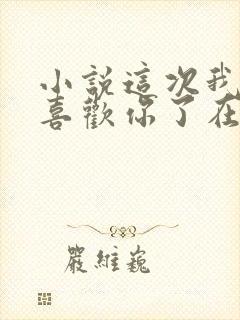 小說這次我
喜歡你了在
嚴維巍